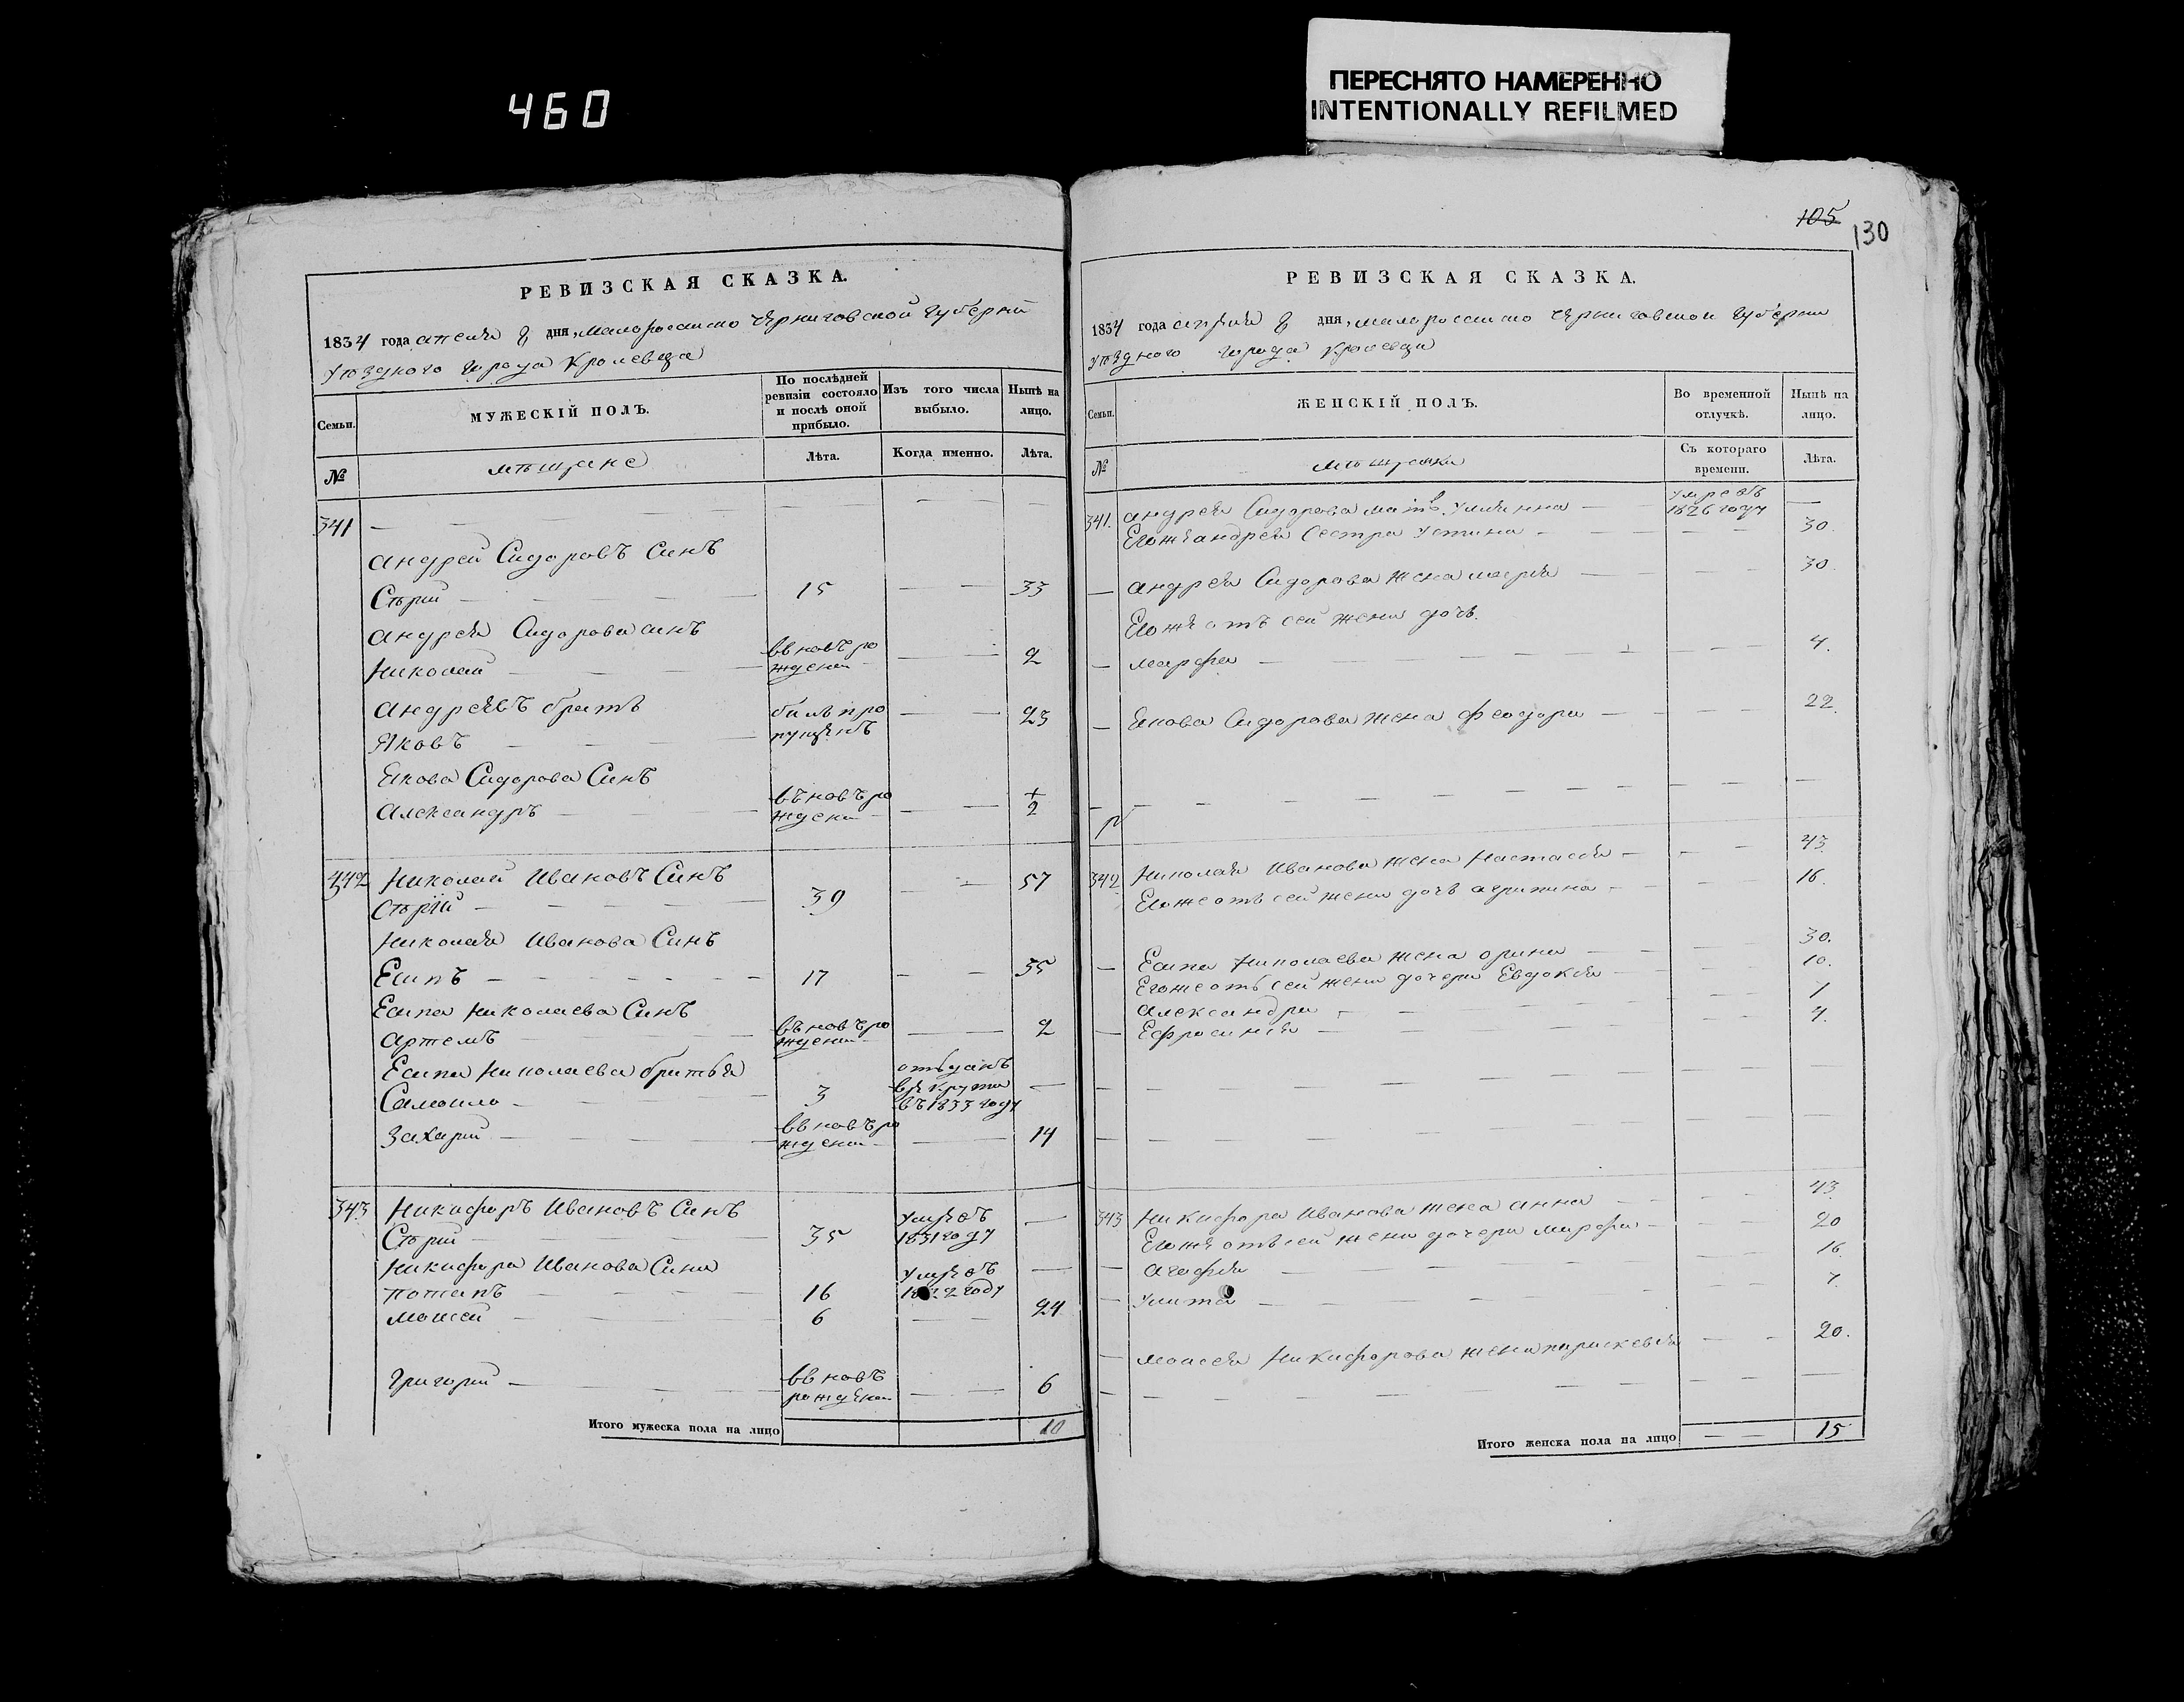 460
ПЕРЕСНЯТО НАМЕРЕННО
INTENTIONALLY REFILMED
105
130
РЕВИЗСКАЯ СКАЗКА.
1834 года апреля дня, Малороссийско Черниговской Губернии
уѣздного города Кролевца
Семьи.
МУЖЕСКІЙ ПОЛЪ.
По послѣдней ревизіи состояло и послѣ оной прибыло.
Изъ того числа выбыло.
Нынѣ на лицо.
№
мѣщане
Лѣта.
Когда именно.
Лѣта.
341
Андрей Сидоровъ Синъ
Сѣрій 15 33
Андрея Сидорова синъ
Николай вновъ рождени 2
Андреевъ братъ
Яковъ билъ пропущенъ 23
Якова Сидорова Синъ
Александръ въ новъ рождени 2
342 Николай Ивановъ Синъ
Сѣрій 39 57
Николая Иванова Синъ
Есипъ 17 35
Есипа Николаева Синъ
Артемъ въ новъ рождени 2
Есипа Николаева братья
Самойло 3 отъданъ в рекруты въ 1833 году
Захарій въ новъ рождени 14
343 Никифоръ Ивановъ Синъ
Сѣрій 35 умре въ 1831 году
Никифора Иванова Сини
Потапъ 16 умре въ
Моисей 6 24
Григорій въ новъ рождени 6
Итого мужеска пола на лицо 10
РЕВИЗСКАЯ СКАЗКА.
1834 года апреля дня, Малороссийско Черниговской Губернии
уѣздного города Кролевца
Семьи.
ЖЕНСКІЙ ПОЛЪ.
Во временной отлучкѣ.
Нынѣ на лицо.
№
мѣщанки
Съ котораго времени.
Лѣта.
341. Андрея Сидорова мать Улиянна умре въ 1826 году
Егоже Андрея Сестра Устина 30.
Андрея Сидорова жена Марія 30.
Егоже отъ сей жени дочь.
Марфа 4.
Якова Сидорова жена Феодора 22.
342 Николая Иванова жена Настасія 43.
Егоже отъ сей жени дочь Агрипина 16.
Есипа Николаева жена Орина 30.
Егоже отъ сей жени дочери Евдокія 10.
Александра 1
Ефросинія 4.
343 Никифора Иванова жена Анна 43.
Егоже отъ сей жени дочери Марфа 20
Агафія 16.
Улита 7.
Моисея Никифорова жена Параскевія 20.
Итого женска пола на лицо 15